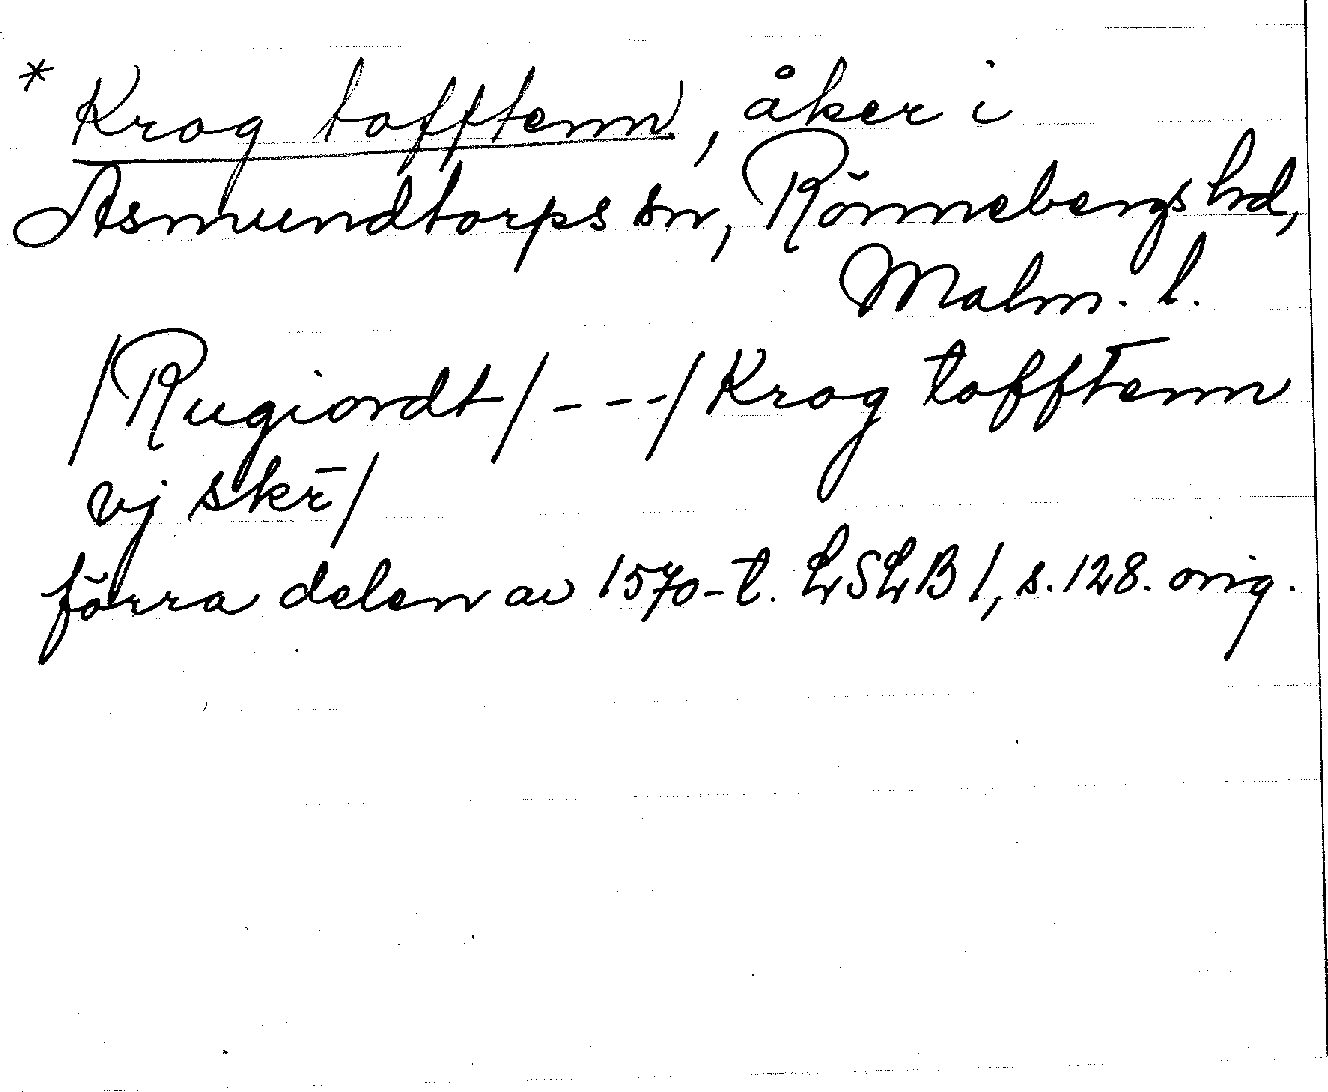 * Krog tofftenn, åker i
Asmundtorps sn, Rönnebergs hd,
Malm. l.
/Rugiordt/ --- /Krog tofftenn
vj skr̄/
förra delen av 1570-t. LSLB 1, s. 128. orig.